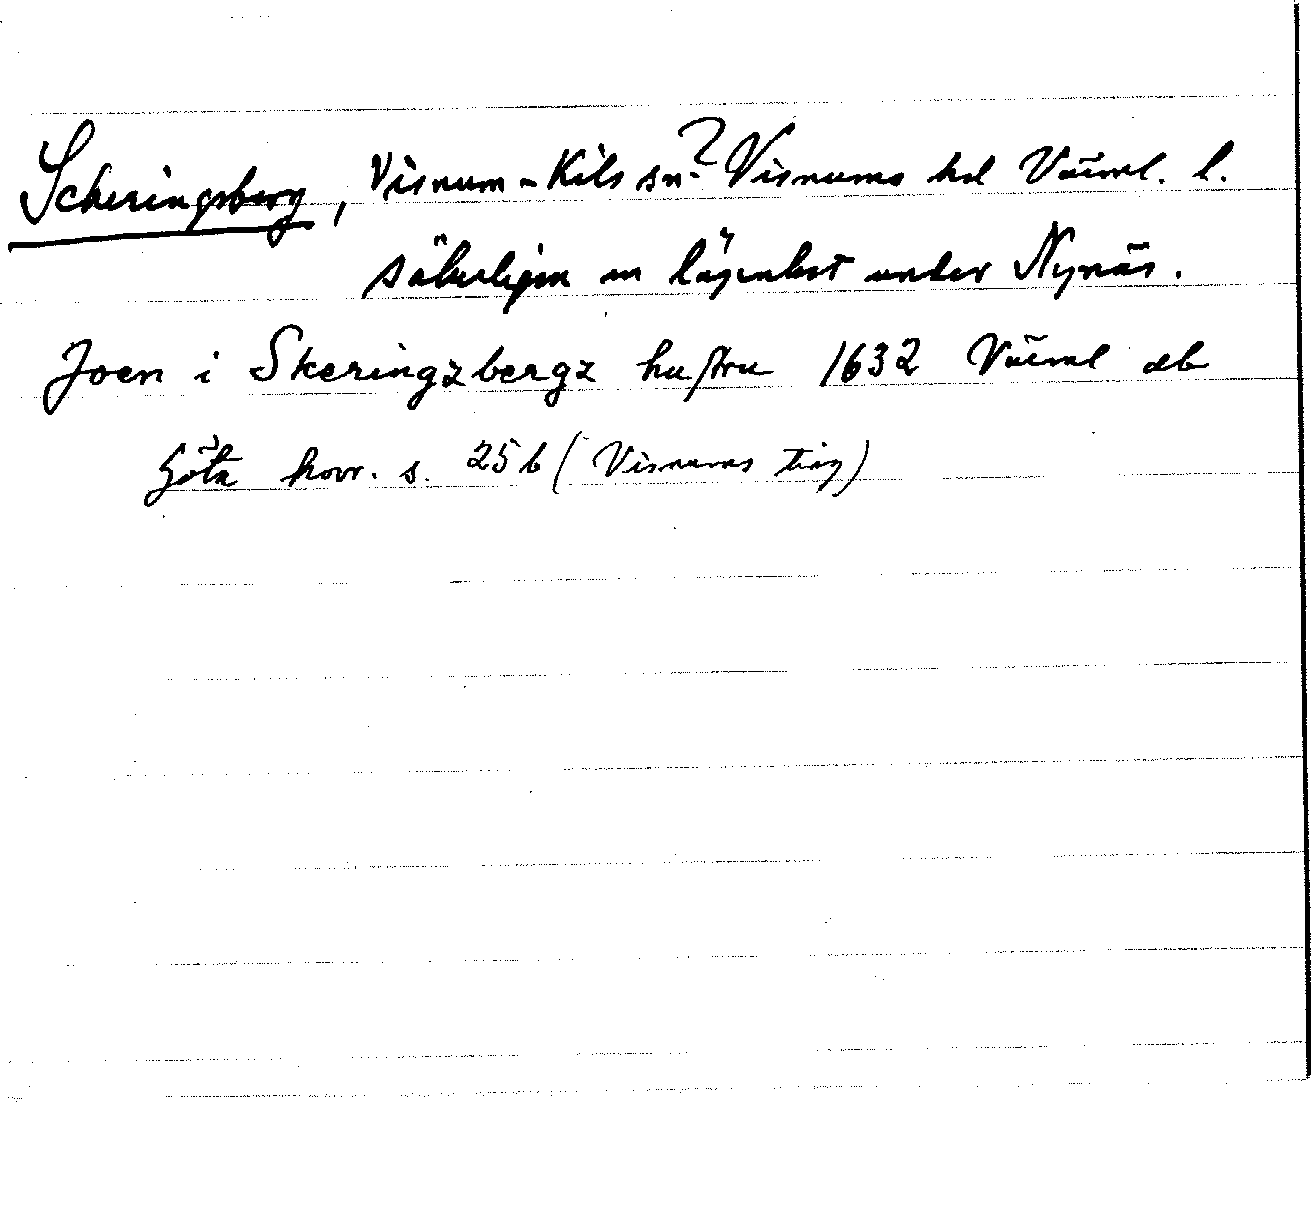 Scheringsberg, Visnum-Kils sn? Visnums hd Värml. l.
säkerligen en lägenhet under Nynäs.
Joen i Skeringzbergz hustru 1632 Värml db
Göta hovr. s. 256 (Visnums ting)